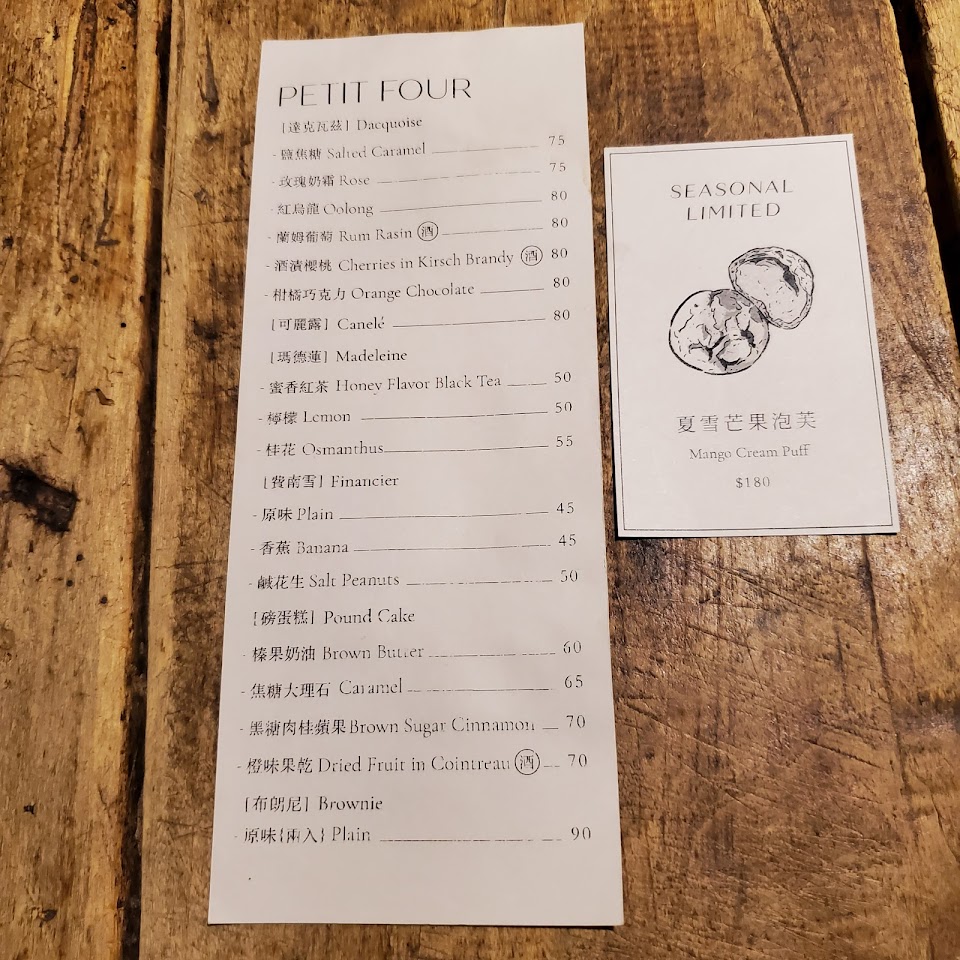 PETIT FOUR
[達克瓦茲] Dacquoise
- 鹽焦糖 Salted Caramel 75
- 玫瑰奶霜 Rose 75
- 紅烏龍 Oolong 80
- 蘭姆葡萄 Rum Rasin 酒 80
- 酒漬櫻桃 Cherries in Kirsch Brandy 酒 80
- 柑橘巧克力 Orange Chocolate 80
[可麗露] Canelé 80
[瑪德蓮] Madeleine
- 蜜香紅茶 Honey Flavor Black Tea 50
- 檸檬 Lemon 50
- 桂花 Osmanthus 55
[費南雪] Financier
- 原味 Plain 45
- 香蕉 Banana 45
- 鹹花生 Salt Peanuts 50
[磅蛋糕] Pound Cake
- 榛果奶油 Brown Butter 60
- 焦糖大理石 Caramel 65
- 黑糖肉桂蘋果 Brown Sugar Cinnamon 70
- 橙味果乾 Dried Fruit in Cointreau 酒 70
[布朗尼] Brownie
- 原味{兩入} Plain 90
SEASONAL
LIMITED
夏雪芒果泡芙
Mango Cream Puff
$180